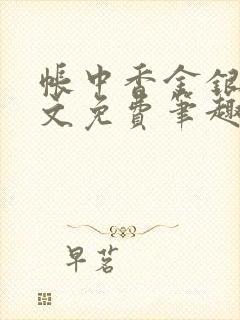 帐中香金银
文免费笔趣
早茗